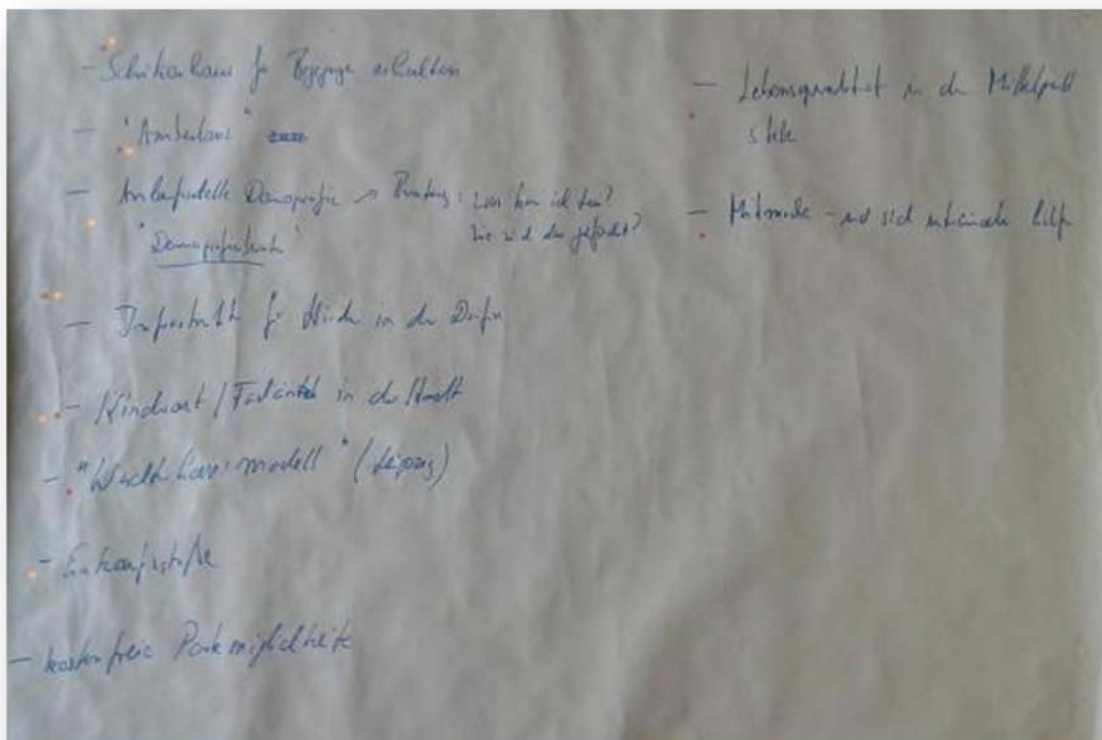 - Schützenhaus für Begegnung erhalten
- "Ambulanz"
- Anlaufstelle Demografie → Beratung: Was kann ich tun?
Wie wird das gefördert?
- Infrastruktur für in den Dörfern
- / in der Stadt
- "Wächterhausmodell" (Leipzig)
- Einkaufsstraße
- kostenfreie Parkmöglichkeiten
- Lebensqualität in den Mittelpunkt
stellen
- Mitmachen - und sich untereinander helfen